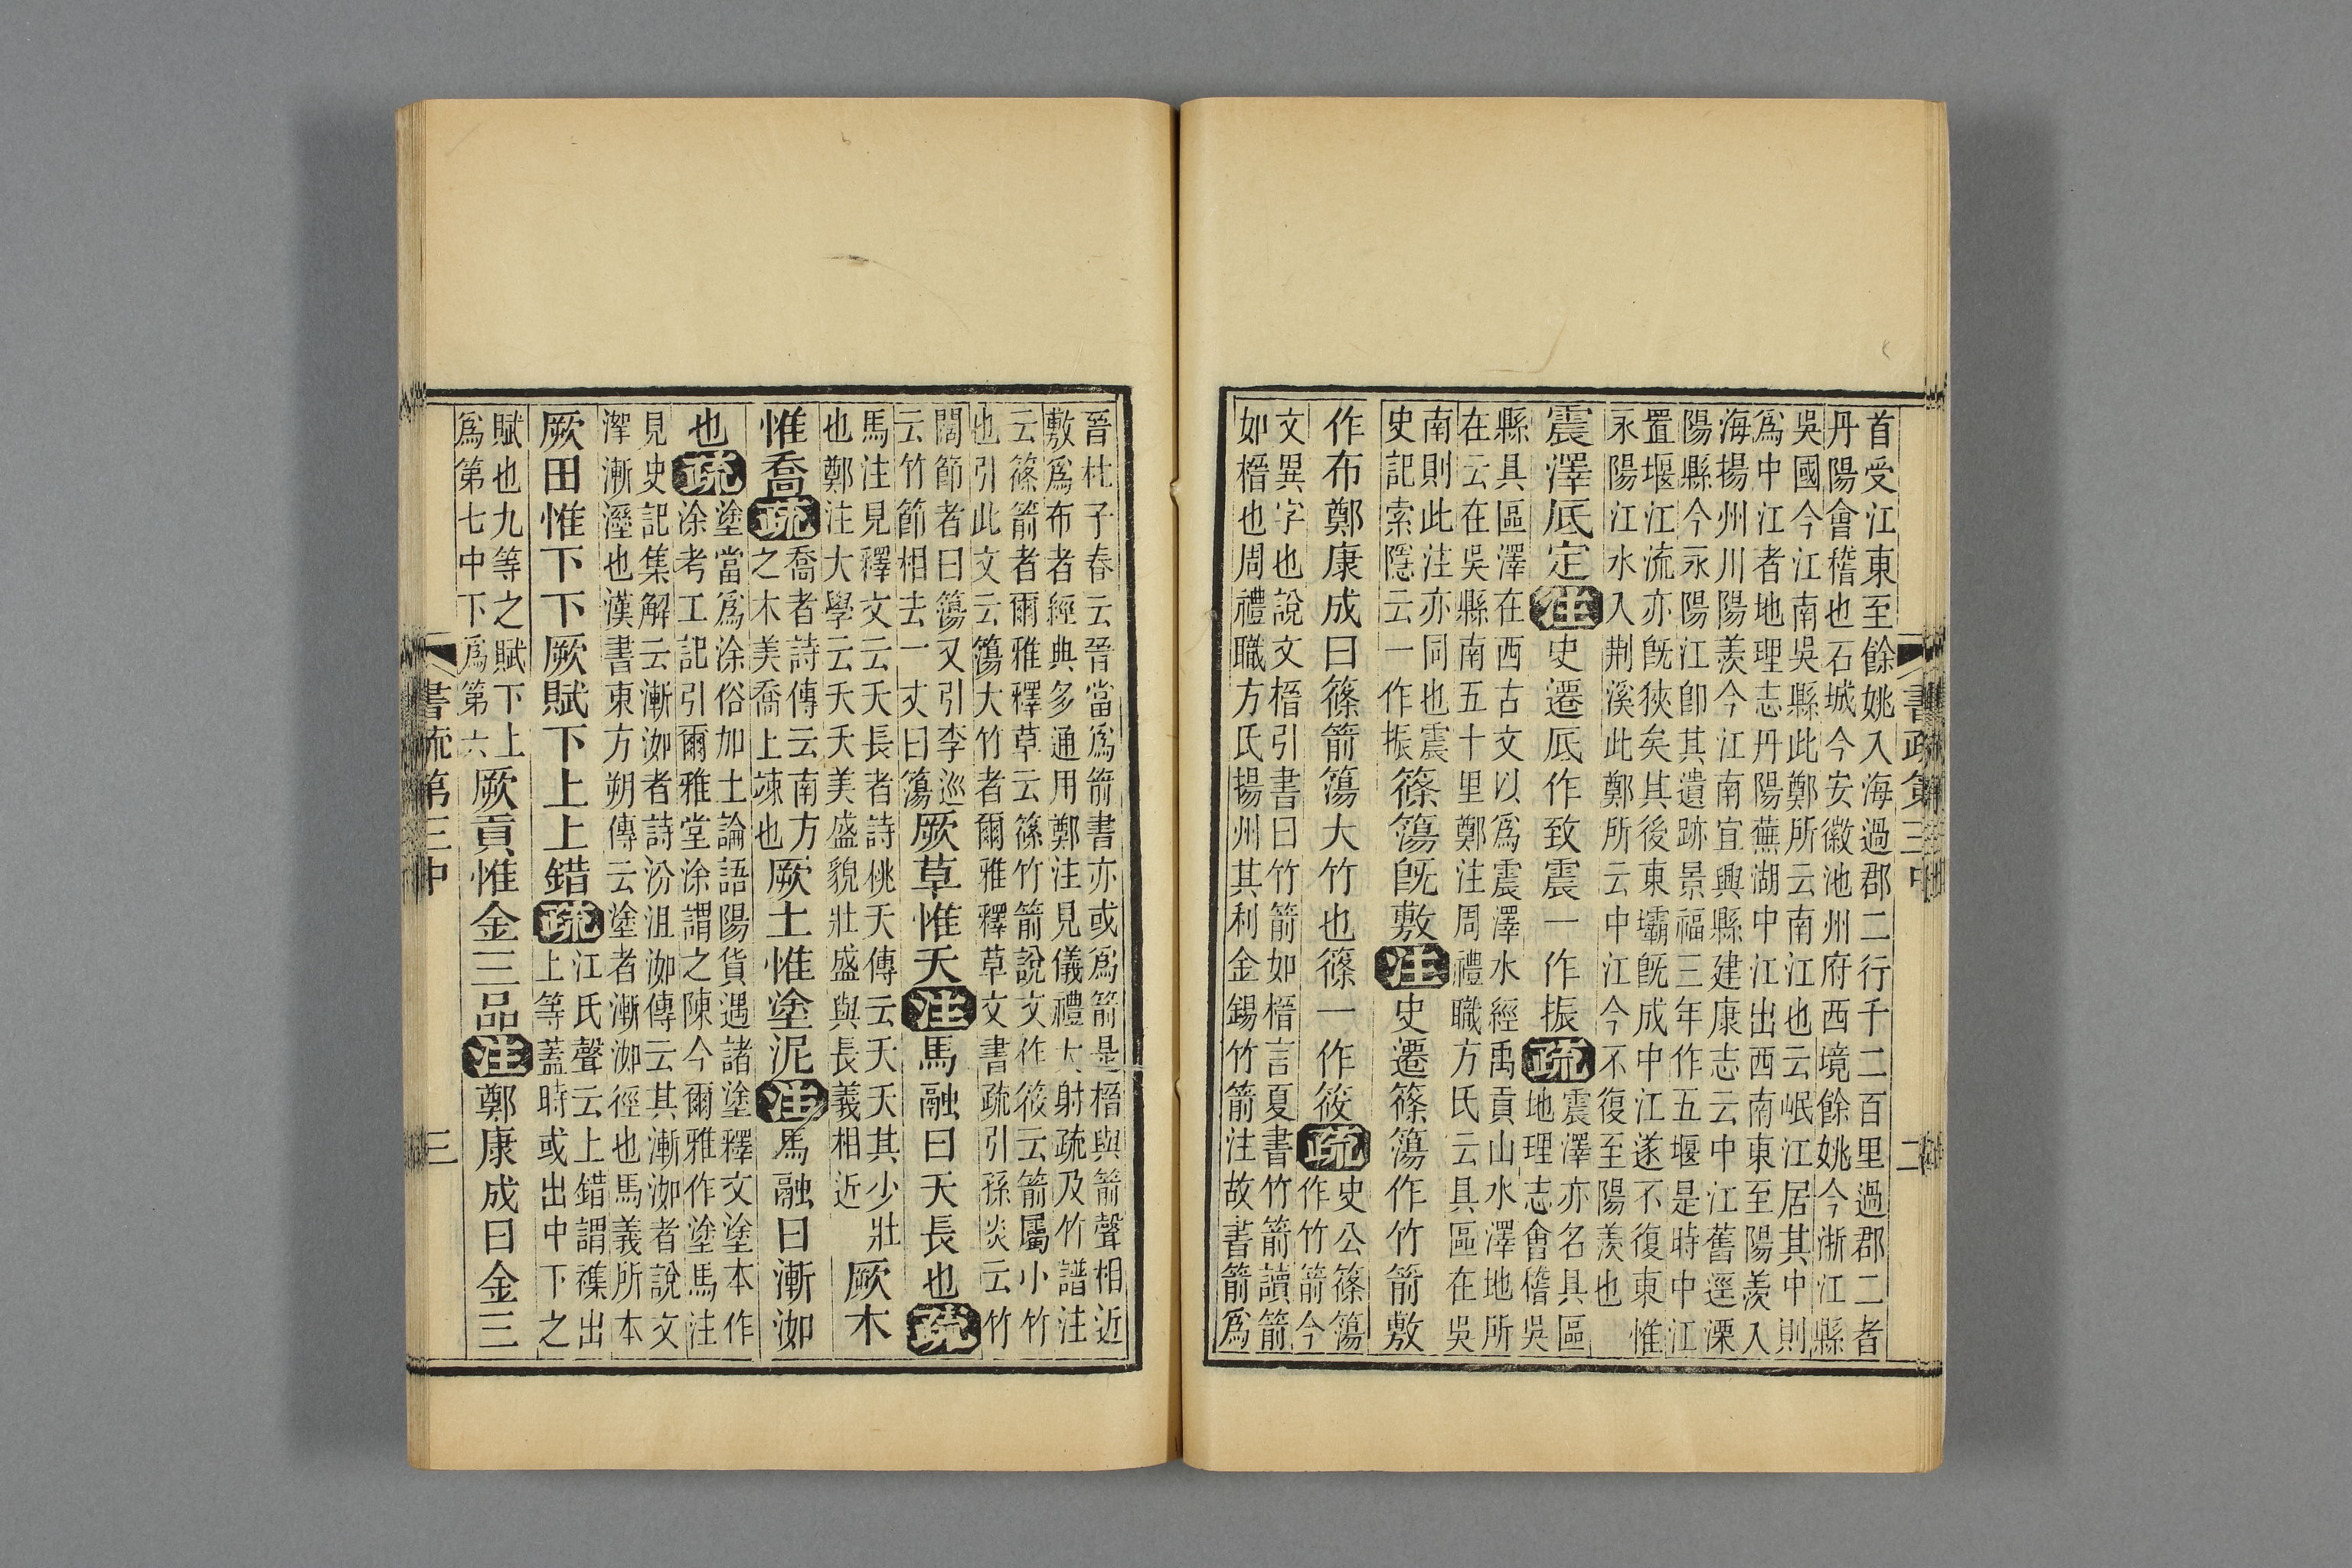 書疏第三中 二
首受江東至餘姚入海過郡二行千二百里過郡二者
丹陽會稽也石城今安徽池州府西境餘姚今浙江縣
吳國今江南吳縣此鄭所云南江也云岷江居其中則
爲中江者地理志丹陽蕪湖中江出西南東至陽羨入
海揚州川陽羨今江南宜興縣建康志云中江舊逕溧
陽縣今永陽江卽其遺跡景福三年作五堰是時中江
置堰江流亦旣狹矣其後東壩旣成中江遂不復東惟
永陽江水入荆溪此鄭所云中江今不復至陽羨也
震澤厎定注史遷厎作致震一作振疏震澤亦名具區
地理志會稽吳
縣具區澤在西古文以爲震澤水經禹貢山水澤地所
在云在吳縣南五十里鄭注周禮職方氏云具區在吳
南則此注亦同也震
史記索隱云一作振
篠簜旣敷注史遷篠簜作竹箭敷
作布鄭康成曰篠箭簜大竹也篠一作筱疏史公篠簜
作竹箭今
文異字也說文榗引書曰竹箭如榗言夏書竹箭讀箭
如榗也周禮職方氏揚州其利金錫竹箭注故書箭爲
晉杜子春云晉當爲箭書亦或爲箭是榗與箭聲相近
敷爲布者經典多通用鄭注見儀禮大射疏及竹譜注
云篠箭者爾雅釋草云篠竹箭說文作筱云箭屬小竹
也引此文云簜大竹者爾雅釋草文書疏引孫炎云竹
闊節者曰簜又引李巡
云竹節相去一丈曰簜
厥草惟夭注馬融曰夭長也疏
馬注見釋文云夭長者詩桃夭傳云夭夭其少壯
也鄭注大學云夭夭美盛貌壯盛與長義相近
厥木
惟喬疏喬者詩傳云南方
之木美喬上竦也
厥土惟塗泥注馬融曰漸洳
也疏塗當爲涂俗加土論語陽貨遇諸塗釋文塗本作
涂考工記引爾雅堂涂謂之陳今爾雅作塗馬注
見史記集解云漸洳者詩汾沮洳傳云其漸洳者說文
漸溼也漢書東方朔傳云塗者漸洳徑也馬義所本
厥田惟下下厥賦下上上錯疏江氏聲云上錯謂襍出
上等蓋時或出中下之
賦也九等之賦下上
爲第七中下爲第六
厥貢惟金三品注鄭康成曰金三
書疏第三中 三